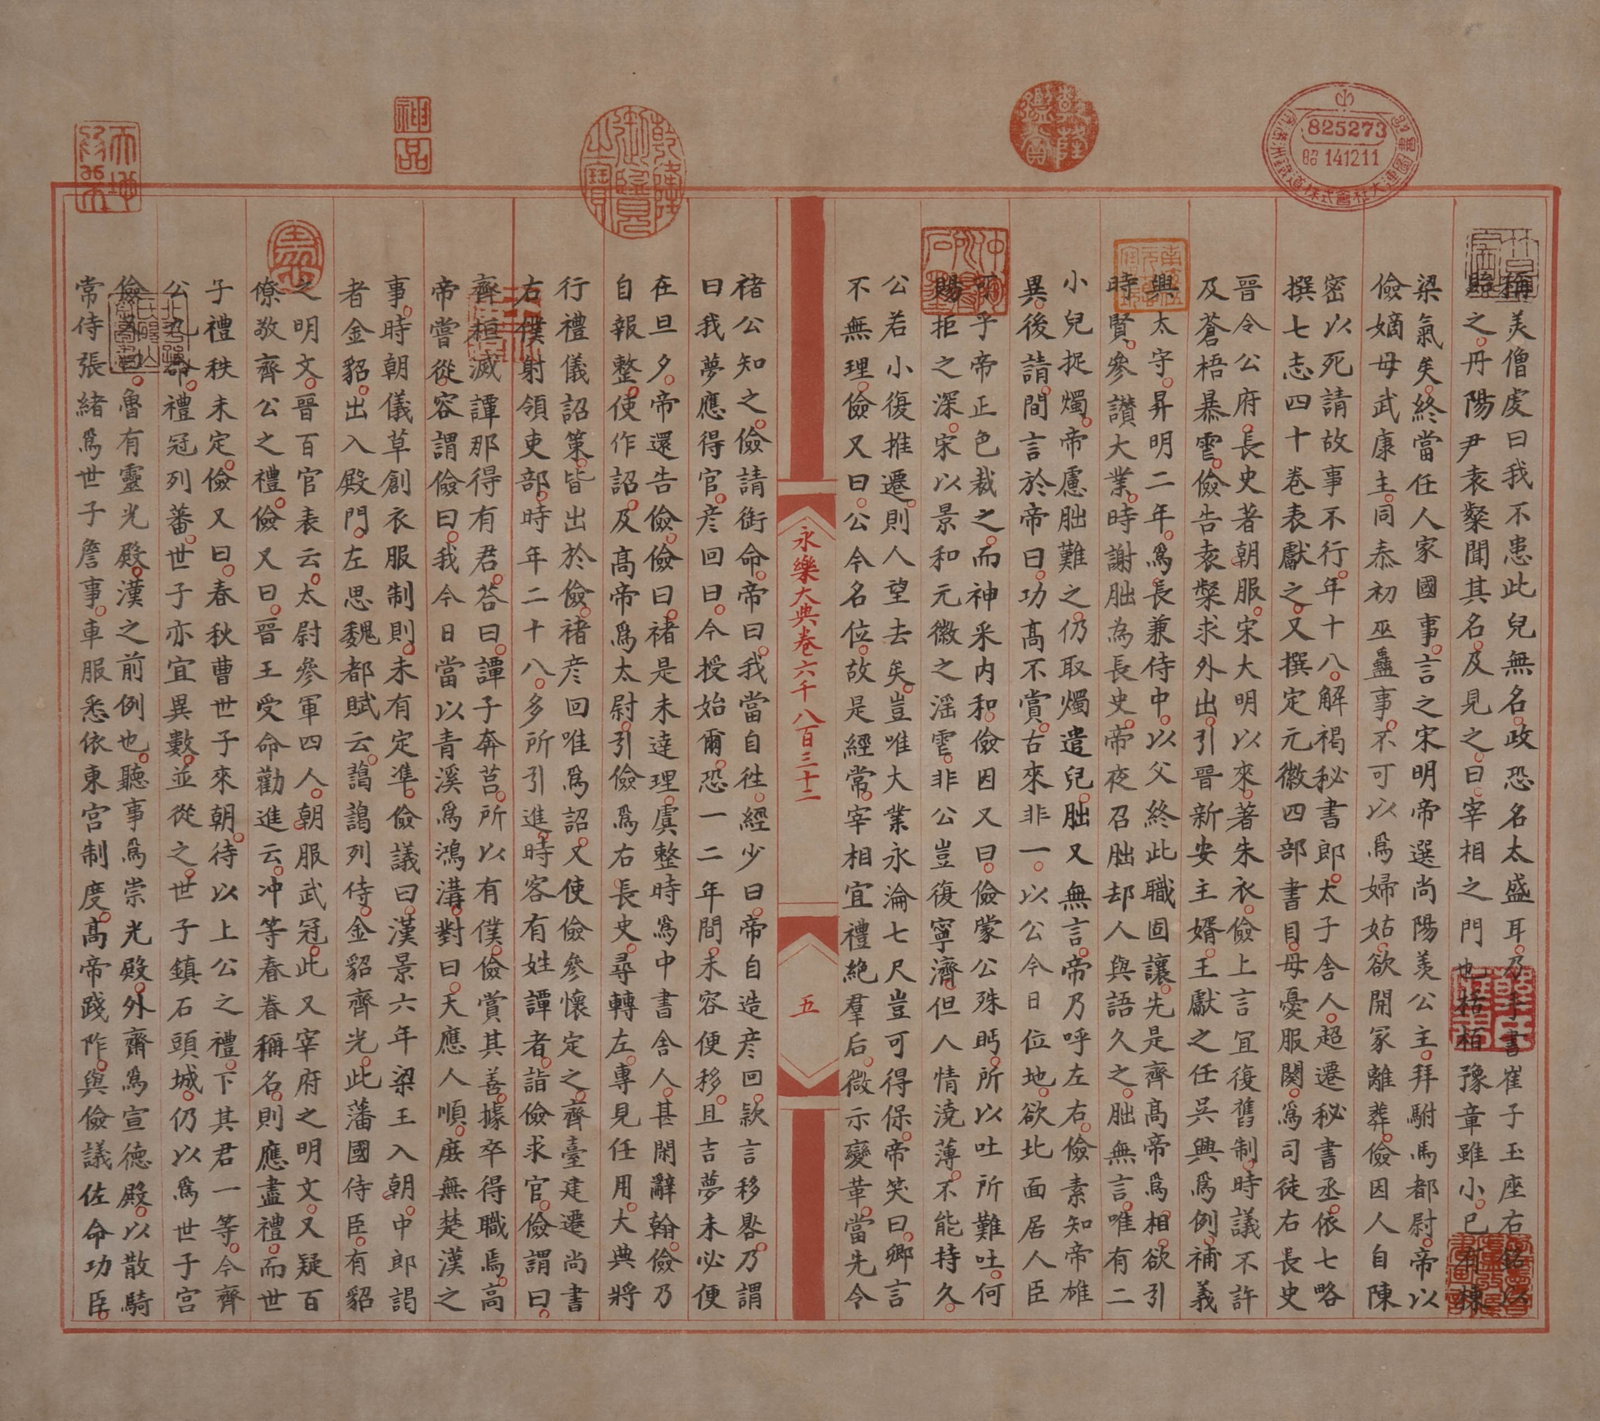 稱美僧虔曰我不患此兒無名政恐名太盛耳乃手書崔子玉座右銘以
貽之丹陽尹袁粲聞其名及見之曰宰相之門也栝栢豫章雖小已有棟
梁氣矣終當任人家國事言之宋明帝選尚陽羨公主拜駙馬都尉帝以
儉嫡母武康主同泰初巫蠱事不可以爲婦姑欲開冢離葬儉因人自陳
密以死請故事不行年十八解褐秘書郎太子舍人超遷秘書丞依七略
撰七志四十卷表獻之又撰定元徽四部書目母憂服闋爲司徒右長史
晉令公府長史著朝服宋大明以來著朱衣儉上言宜復舊制時議不許
及蒼梧暴虐儉告袁粲求外出引晉新安主婿王獻之任吳興爲例補義
興太守昇明二年爲長兼侍中以父終此職固讓先是齊高帝爲相欲引
時賢參讚大業時謝朏為長史帝夜召朏却人與語久之朏無言唯有二
小兒捉燭帝慮朏難之仍取燭遣兒朏又無言帝乃呼左右儉素知帝雄
異後請間言於帝曰功高不賞古來非一以公今日位地欲北面居人臣
可乎帝正色裁之而神采内和儉因又曰儉蒙公殊眄所以吐所難吐何
賜拒之深宋以景和元徽之淫虐非公豈復寧濟但人情澆薄不能持久
公若小復推遷則人望去矣豈唯大業永淪七尺豈可得保帝笑曰卿言
不無理儉又曰公今名位故是經常宰相宜禮絶羣后微示變革當先令
永樂大典卷六千八百三十二
五
褚公知之儉請銜命帝曰我當自往經少日帝自造彦回款言移晷乃謂
曰我夢應得官彦回曰今授始爾恐一二年間未容便移且吉夢未必便
在旦夕帝還告儉儉曰褚是未達理虞整時爲中書舍人甚閑辭翰儉乃
自報整使作詔及高帝爲太尉引儉爲右長史尋轉左專見任用大典將
行禮儀詔策皆出於儉褚彦回唯爲詔又使儉參懷定之齊臺建遷尚書
右僕射領吏部時年二十八多所引進時客有姓譚者詣儉求官儉謂曰
齊桓滅譚那得有君荅曰譚子奔莒所以有僕儉賞其善據卒得職焉高
帝嘗從容謂儉曰我今日當以青溪爲鴻溝對曰天應人順庻無楚漢之
事時朝儀草創衣服制則未有定準儉議曰漢景六年梁王入朝中郎謁
者金貂出入殿門左思魏都賦云藹藹列侍金貂齊光此藩國侍臣有貂
之明文晉百官表云太尉參軍四人朝服武冠此又宰府之明文又疑百
僚敬齊公之禮儉又曰晉王受命勸進云冲等眷眷稱名則應盡禮而世
子禮秩未定儉又曰春秋曹世子來朝待以上公之禮下其君一等今齊
公九命禮冠列蕃世子亦宜異數並從之世子鎮石頭城仍以爲世子宮
儉又曰魯有靈光殿漢之前例也聽事爲崇光殿外齋爲宣德殿以散騎
常侍張緒爲世子詹事車服悉依東宮制度高帝踐阼與儉議佐命功臣
神品
乾隆御覽之寶
825273
昭141211
南満洲鐵道株式會社大連圖書